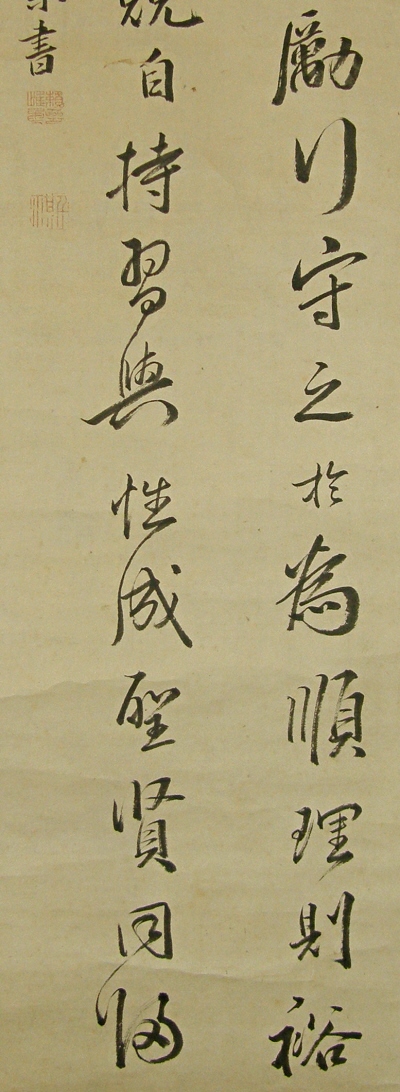 勵行守之於為順理則裕
兢自持習與性成聖賢同歸
書